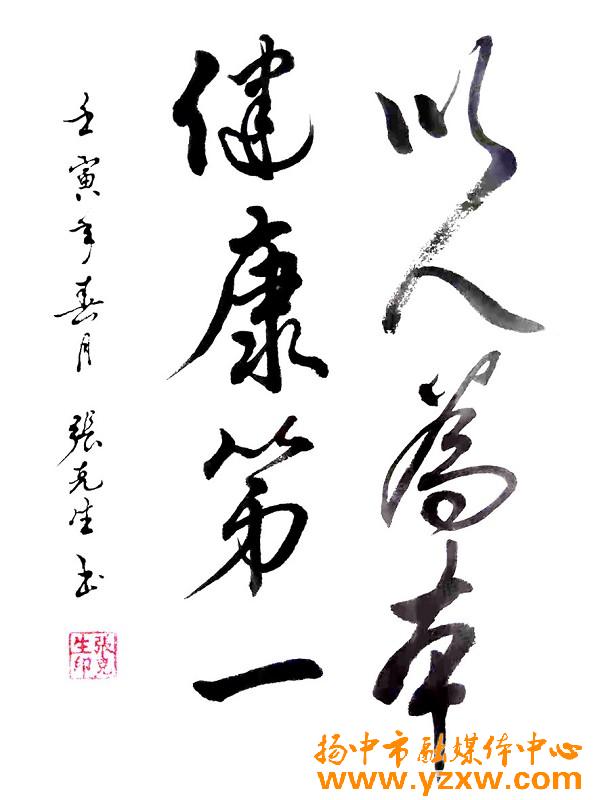 以人為本
健康第一
壬寅年春月 張克生書
張克生印
扬中市融媒体中心
www.yzxw.com